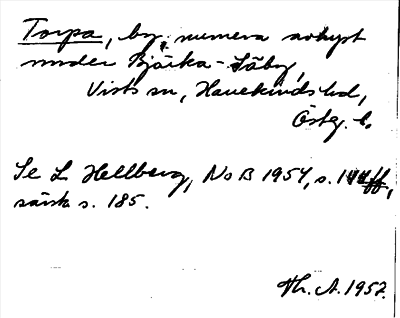 Torpa, by, numera avhyst
under Bjärka-Säby,
Vists sn, Hanekinds hd,
Östg. l.
Se L Hellberg, NoB 1954, s. ff,
särsk s. 185.
Th. A. 1957.